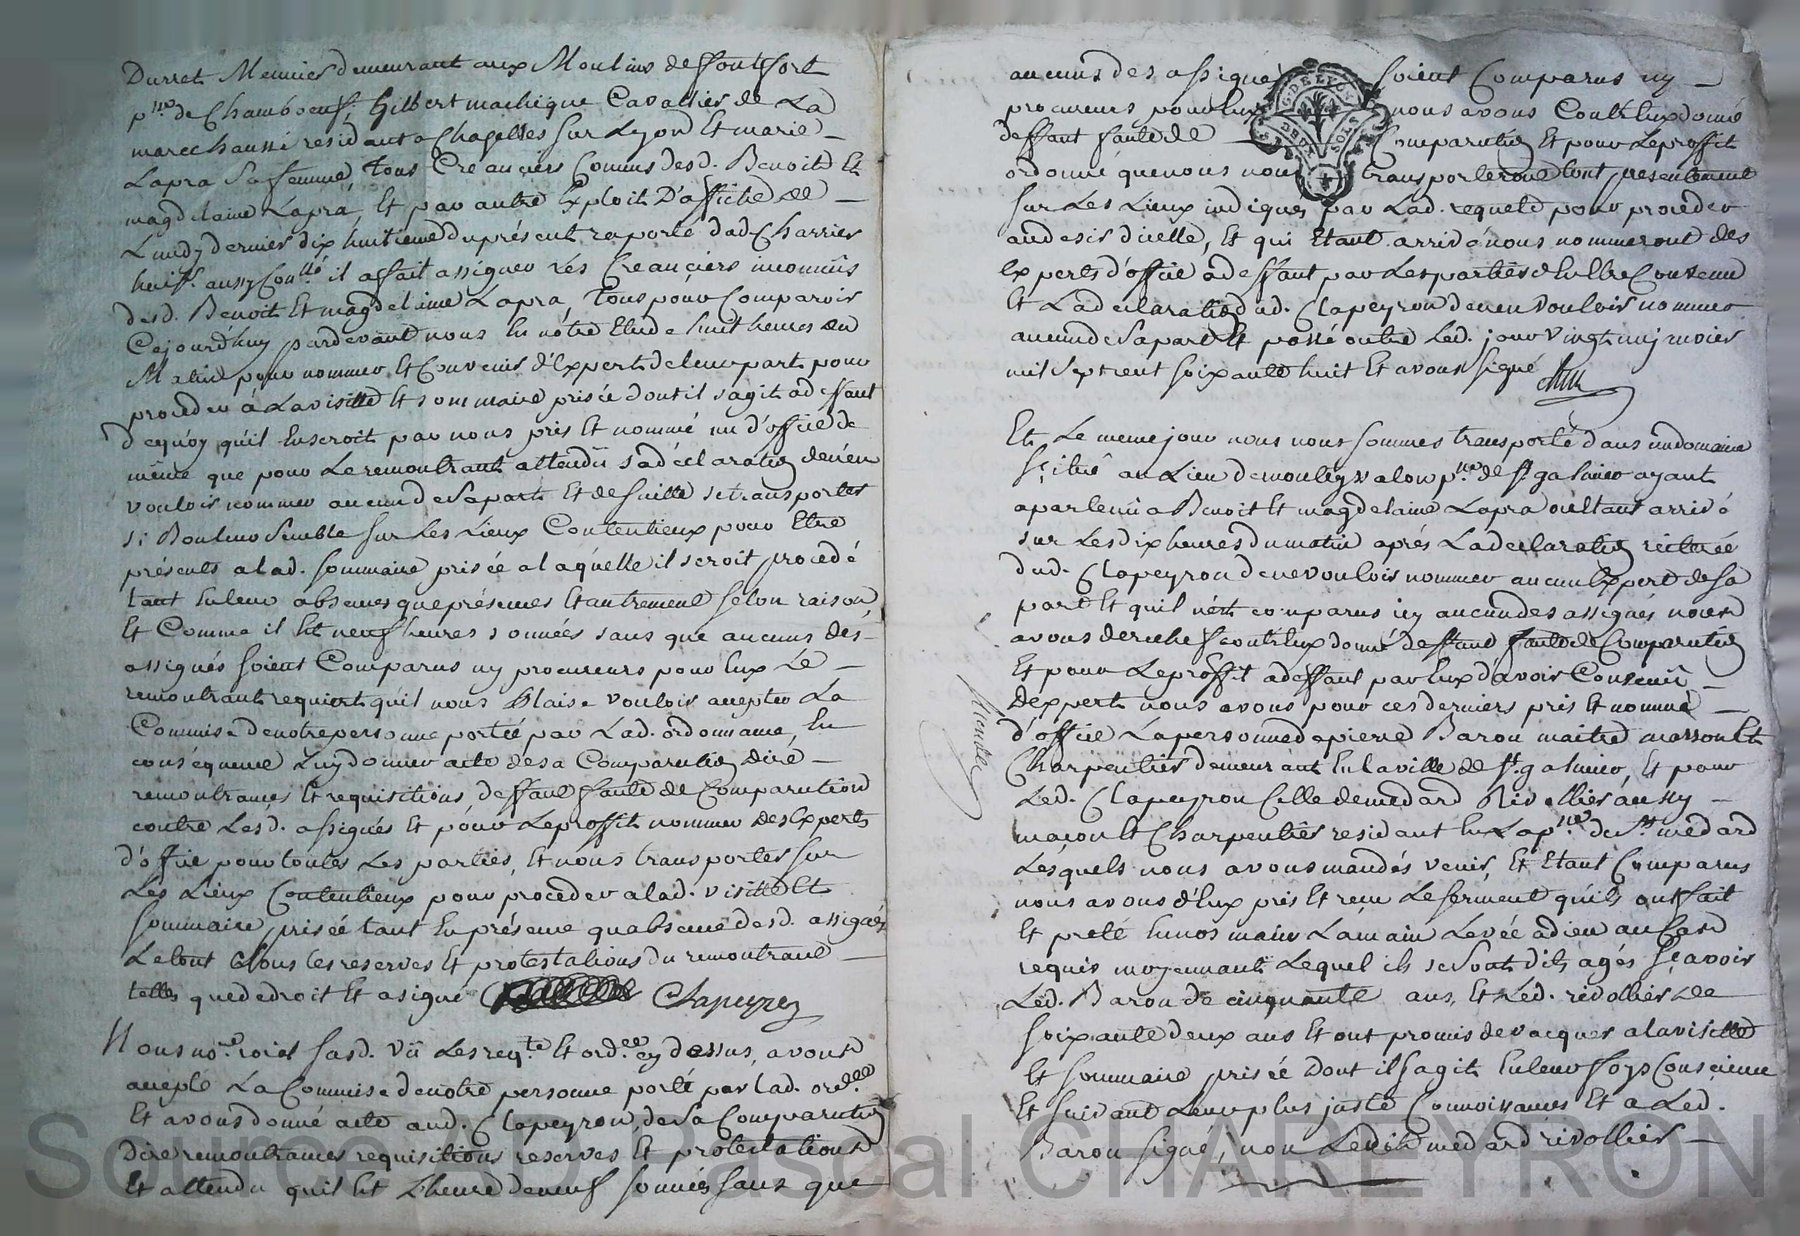 Durret Meunier demeurant aux Moulins de ffontfort
p.sse de Chamboeuf, Gilbert machique Cavallier de La
marechaussé residant a Chaselles sur Lyon Et marie
Lapra Sa femme, tous Creanciers Connus desd. Benoit Et
magdelaine Lapra, Et par autre Exploit D'affiche de
Lundy dernier dix huitieme du présent raporté dud. Charrier
huiss. aussy Con.llé il a fait assigner les Creanciers inconnûs
desd. Benoit Et magdelaine Lapra, tous pour Comparoir
Cejourd'huy pardevant nous En nôtre Etude huit heures du
Matin pour nommer Et Convenir d'Expert de leur part pour
proceder à La visitte Et sommaire prisée dont il s'agit, adeffaut
dequoy qu'il En seroit par nous pris Et nommé un d'office de
même que pour Le remontrant attendû sa déclaration de n'en
vouloir nommer aucun de Sa part Et de suitte se transporter
si Bon leur Semble sur Les Lieux Contentieux pour Etre
présents a lad. sommaire prisée a laquelle il seroit procedé
tant En leur absences que présences Et autrement selon raison,
Et Comme il Est neuf heures sonnées sans que aucuns des
assignés soient Comparus ny procureurs pour Eux Le
remontrant requiert qu'il nous Plaise vouloir accepter La
Commise de notre personne portée par Lad. ordonnance, En
conséquence Luy donner acte de sa Comparution dire
remontrances Et requisitions, deffaut faute de Comparution
contre Lesd. assignés Et pour Le proffit nommer des Experts
d'office pour toutes Les parties, Et nous transporter sur
Les Lieux Contentieux pour proceder a lad. visitte Et
sommaire prisée tant En présence qu'absence desd. assignés
Le tout sous les reserves Et protestations du remontrant
telles que de droit Et a signé Clapeyron
Nous no.re royal susd. Vû Les req.te Et ord.ce cy dessus, avons
accepté La Commise de notre personne porté par Lad. ord.ce
Et avons donné acte aud. Clapeyron, de Sa Comparution
dire remontrances requisitions reserves Et protestations
Et attendu qu'il Est L'heure de neuf sonnées sans que
aucuns des assignés soient Comparus ny
procureurs pour Eux nous avons Contr'Eux donné
deffaut faute de Comparution Et pour Le proffit
ordonné que nous nous transporterons tout presentement
sur Les Lieux indiqués par Lad. requete pour proceder
au desir d'icelle, Et qui Etant arrivé nous nommeront des
Experts d'office a deffaut par Les parties d'En Etre Convenu
Et La declaration dud. Clapeyron de n'en vouloir nommer
aucun de Sa part Et passé outre Led. jour vingt un mars
mil sept cent soixante huit Et avons signé
Et Le meme jour nous nous sommes transporté dans un domaine
situé au Lieu de p.sse de St galmier ayant
apartenû a Benoit Et magdelaine Lapra ou Etant arrivé
sur Les dix heures du matin aprés La declaration réiterée
dud. Clapeyron de ne vouloir nommer aucun Expert de Sa
part Et qu'il n'est comparus icy aucun des assignés nous
avons derechef contr'Eux donné deffaut faute de Comparution
Et pour Le proffit a deffaut par Eux d'avoir Convenû
d'Expert nous avons pour ces derniers pris Et nommé
d'office La personne de pierre Baron maitre masson Et
Charpentier demeurant En la ville de St. galmier, Et pour
Led. Clapeyron Celle de medard Rivollier aussy
maçon Et Charpentier residant En La p.sse de St medard
Lesquels nous avons mandés venir, Et Etant Comparus
nous avons d'Eux pris Et reçu Le serment qu'ils ont fait
Et preté En nos mains La main Levée a dieu au Cas
requis moyennant Lequel ils se sont dits agés sçavoir
Led. Baron de cinquante ans, Et Led. rivollier de
soixante deux ans Et ont promis de vacquer a la visitte
Et sommaire prisée dont il s'agit En leur foy Conscience
Et suivant Leur plus juste Connoissances Et a Led.
Baron signé, non Ledit medard rivollier
G. DE LYON
DEUX SOLS
Source AD Pascal CHAREYRON